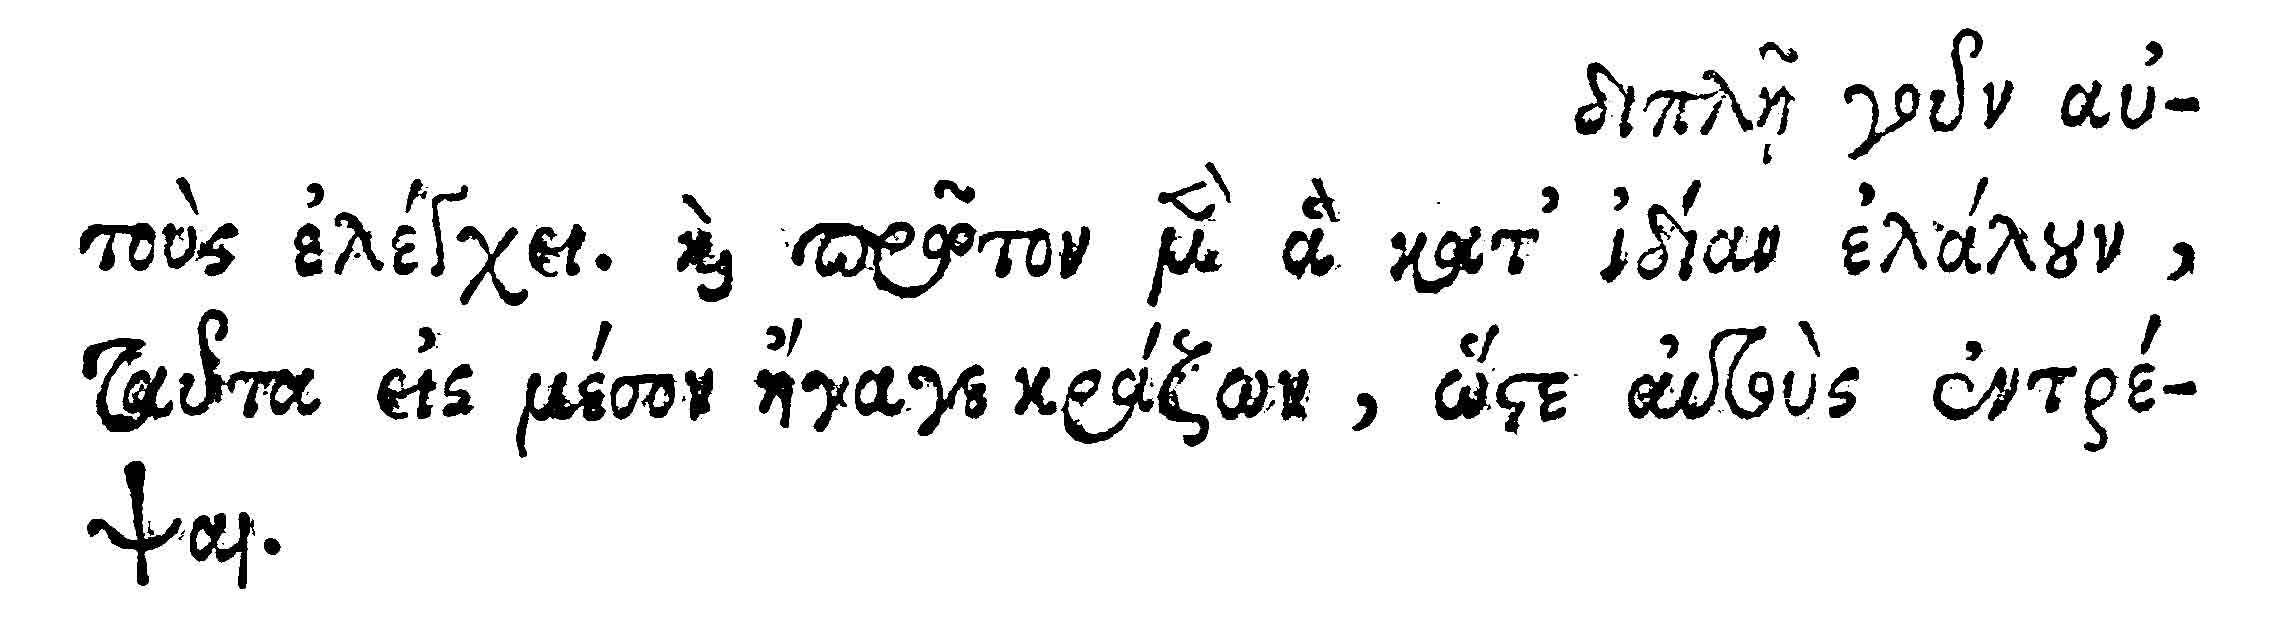 διπλῇ γοῦν αὐ-
τοὺς ἐλέγχει. καὶ πρῶτον μὲν ἃ κατ’ ἰδίαν ἐλάλουν,
ταῦτα εἰς μέσον ἤγαγε κράζων, ὥστε αὐτοὺς ἐντρέ-
ψαι.